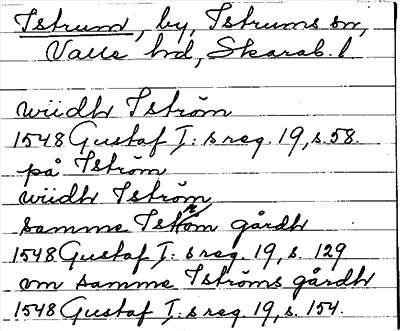 Istrum, by, Istrums sn,
Valle hd, Skarab. l
wiidh Iström
1548 Gustaf I: s reg. 19, s. 58.
på Iström
wiidh Iström
samme Iström gårdh
1548 Gustaf I: s reg. 19, s. 129
om samme Iströms gårdh
1548 Gustaf I: s reg. 19, s. 154.